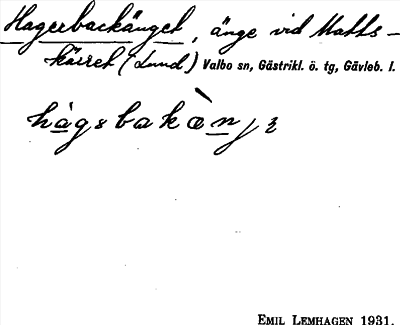 Hagerbackänget, änge vid Matts-
kärret (Lund) Valbo sn, Gästrikl. ö. tg, Gävleb. l.
EMIL LEMHAGEN 1931.